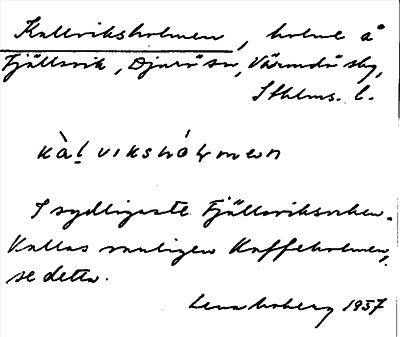 Kallviksholmen, holme å
Fjällsvik, Djurö sn, Värmdö skg,
Sthlms. l.
kàl vikshólmen
I sydligaste Fjällsviksviken.
Kallas vanligen Kaffeholmen,
se detta.
1937